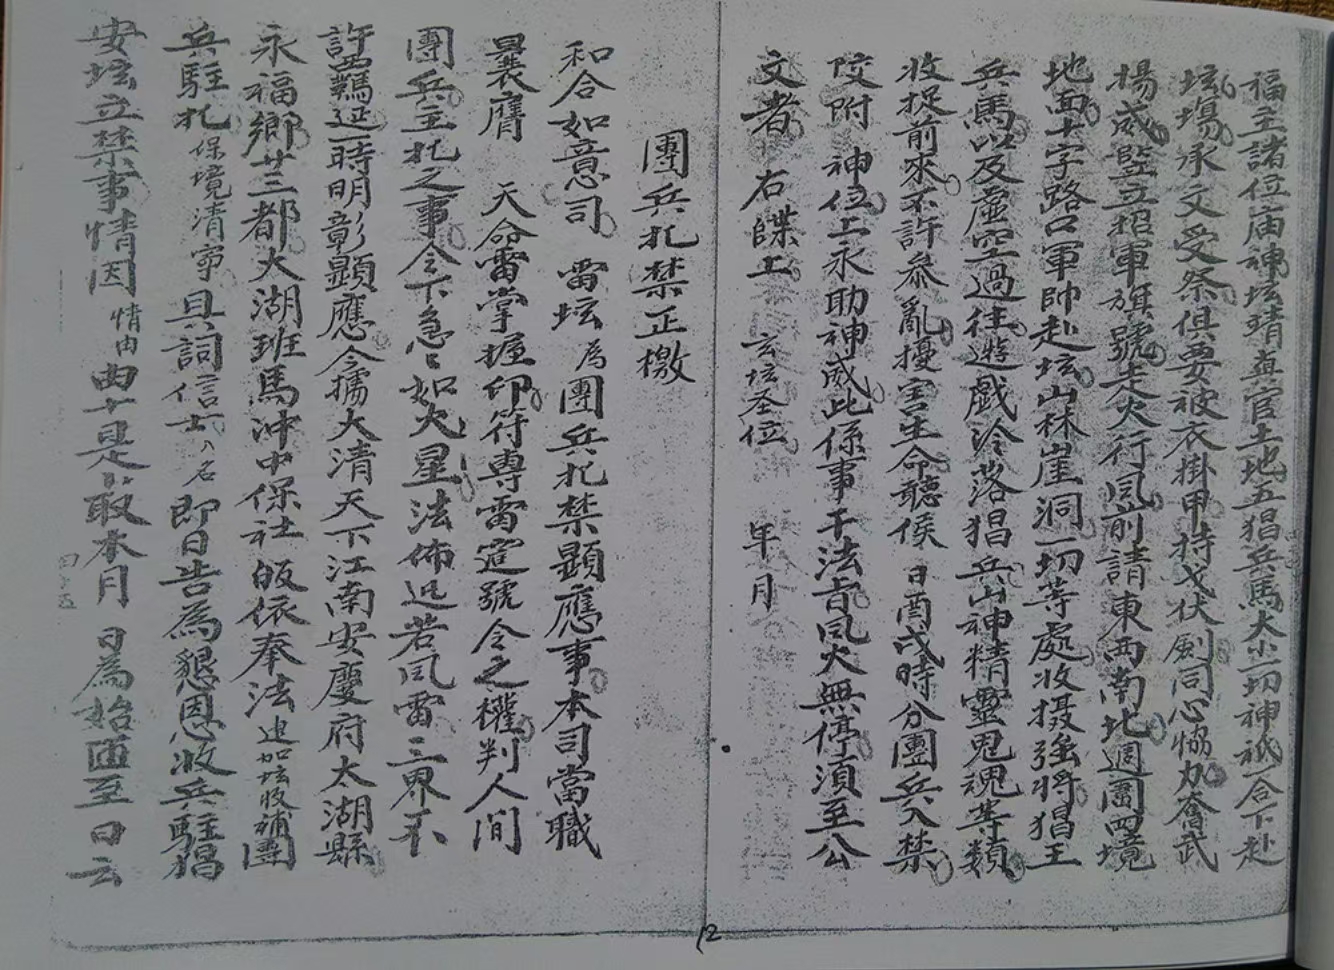 福主諸位庙神坛靖真官土地五猖兵馬大小一切神祇合下赴
坛塲承文受祭俱要被衣掛甲持戈伏劍同心恊力奮武
揚威豎立招軍旗號走火行風前請東西南北週圍四境
地面十字路口軍帥赴坛山林崖洞一切等處收摄強将猖王
兵馬以及虛空過往遊戯泠落猖兵山神精靈鬼魂等類
收捉前來不許叅亂擾害生命聽候 日酉戌時分團兵入禁
附 神位上永助神威此係事干法旨風火無停湏至公
文者 右牒上 玄坛圣位 年 月
團兵扎禁正檄
和合如意司 雷坛 為團兵扎禁顯應事本司當職
曩膺 天命雷掌握印符專雷霆號令之權判人间
團兵主扎之事令下急々如火星法佈迅若風雷三界不
許覊延一時明彰顯應今㩀大清天下江南安慶府太湖縣
永福鄉廿三都大湖班馬沖中保社皈依奉法建如坛收補團
兵駐扎保境清寧具詞信士人名即日告為懇恩收兵駐猖
安坛立禁事情因情由由于是以取本月 日為始匝至 日云
12